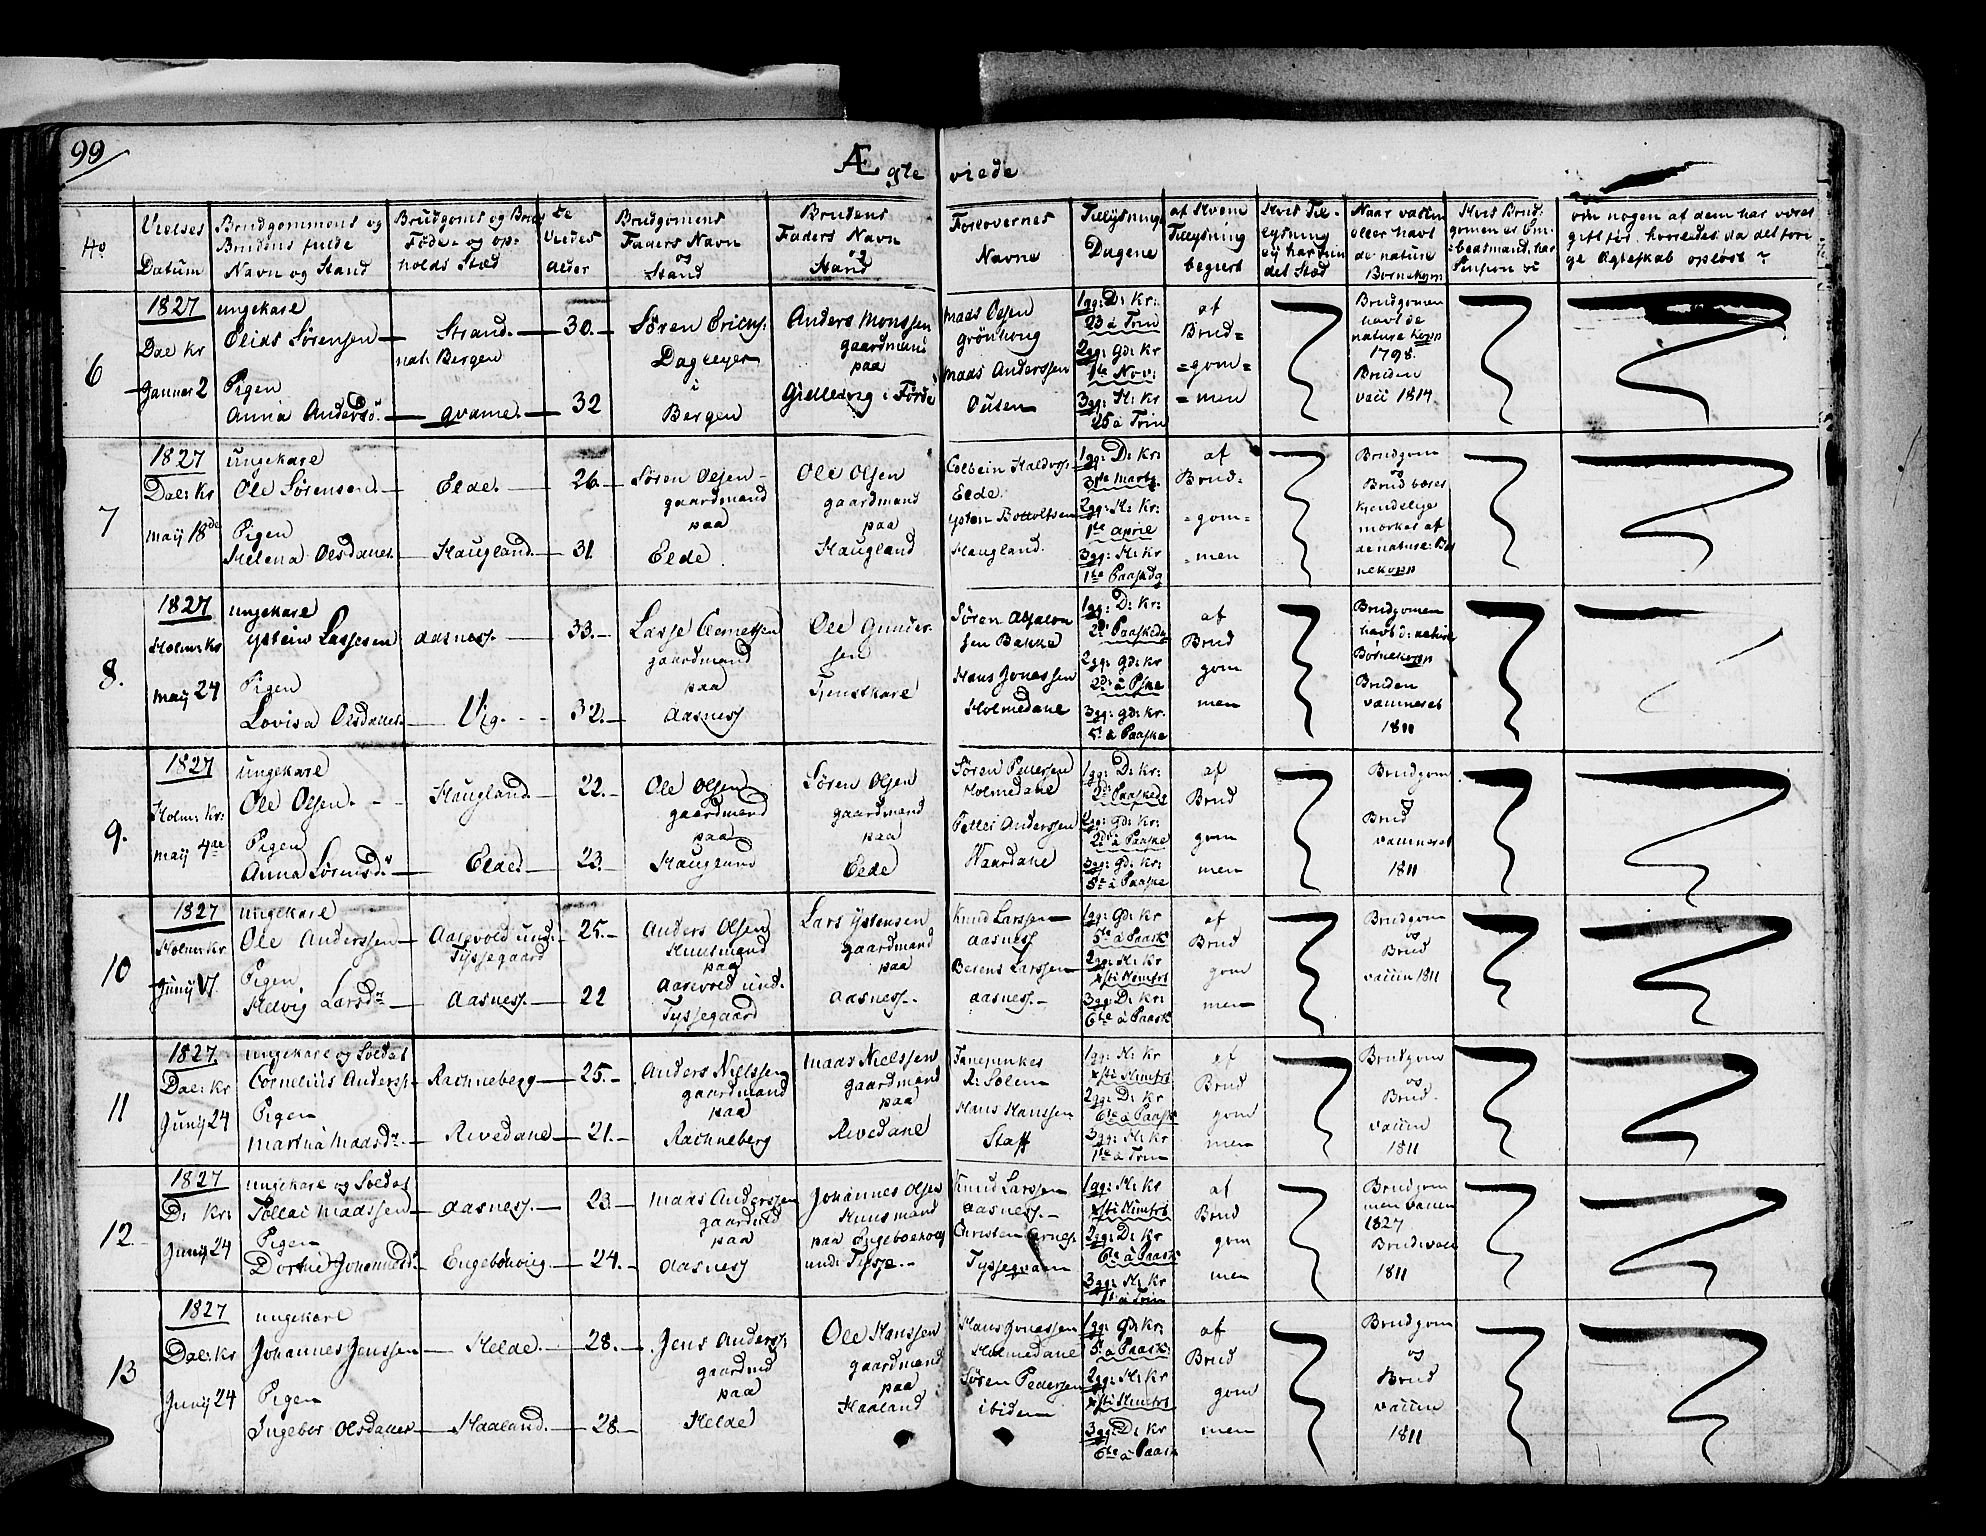 99
Ægte viede
No
Vielses
Datum
Brudgommens og
Brudens fulde
Navn og Stand
Brudgoms og Brudes
Føde- og op-
holds Stæd
De
Viedes
Alder
Brudgomens
Faders Navn
og
Stand
Brudens
Faders Navn
og
Stand
Forlovernes
Navne
Tillysning
Dagene
af Hvem
Tillysning
begiert
Hvis Til-
lysning
ej har fun
det Stæd
Naar vaccin
eller havt
de nature
Børnekopp
Hvis Brud-
gomen er Em-
bedsmand, har
Pension
om nogen af dem har været
gift før. hvorledes da det fori
ge Ægteskab opløst ?
6
1827
Dal Kr
Januer 2
ungekarl
Elias Sørensen
Pigen
Anna Andersd.
Strand.
nat: Bergen
Qvame.
30.
32
Søren Erics:
Dagleyer
i
Bergen
Anders Monssen
gaardmand
paa
Giellevig i Førde
Maas Olsen
Grönhoug
Maas Anderssen
Ousen
1gg: D: Kr:
23 à Trin
2gg: Gd: Kr
1te Nov:
3gg: H: Kr
25 à Trin
af
Brud=
=gom=
=men
Brudgomen
havt de
nature Kopp
1798.
Bruden
vacc 1814
7
1827
Dal: Kr
May 18de
ungekarl
Ole Sørensen.
Pigen
Helena Olsdatter
Elde.
Haugland.
26.
31
Søren Olsen
gaardmand
paa
Elde.
Ole Olsen
gaardmand
paa
Haugland
Colbein Haldors:
Elde.
Ysten Bottolfsen
Haugland.
1gg: D: Kr:
31te Marts.
2gg: H: Kr:
1te April
3gg: H: Kr
1te Paaskdg
af
Brud=
=gom=
=men
Brudgom
og
Brud bæres
kjendelige
mærkes af
de nature: Bør
nekopp
8.
1827
Holm: Kr
May 24
ungekarl
Ystein Lassesen
Pigen
Lovisa Olsdatter
Aasnes.
Vig.
33.
32.
Lasse Clemetsen
gaardmand
paa
Aasnes
Ole Gunder-
sen
Tjenstkarl
Søren Absalon
sen Bakke
Hans Jonassen
Holmedale
1gg: D: Kr:
2d: Paaskedg
2gg: Gd: Kr
2d: à Pske
3gg: Gd: Kr.
5: à Paaske
af
Brud
gom
men
Brudgomen
havt d: natur
Børnekopp
Bruden
vaccineret
1811
9.
1827
Holm: Kr:
May 4de
ungekarl
Ole Olsen.
Pigen
Anna Sørensd.
Haugland.
Elde.
22.
23.
Ole Olsen
gaardmand
paa
Haugland
Søren Olsen
gaardmand
paa
Elde
Søren Pedersen
Holmedale
Peder Anderssen
Waardale
1gg: D: Kr:
2d: Paaskedg
2gg: Gd: Kr:
2d: à Paaske
3gg: Gd: Kr:
5te à Paaske
af
Brud
gom
men
Brudgom
&
Brud
vaccineret
1811
10
1827
Holm: Kr
Junij 17
ungekarl
Ole Anderssen
Pigen
Helvig Larsdr
Aarevold und:
Tyssegaard
Aasnes.
25.
22
Anders Olsen
Huusmand
paa
Aarevold und:
Tyssegaard
Lars Ystensen
gaardmand
paa
Aasnes.
Knud Larssen
Aasnes
Berent Larssen
Aasnes.
1gg: Gd: Kr
5te à Paask
2gg: H: Kr
Xsti Himfrt
3gg: D: Kr:
6te à Paask
af
Brud
gom
men
Brudgom
og
Brud
vaccin 1811
11
1827.
Dal: Kr
Junij 24
ungekarl og Soldat
Cornelius Anders:
Pigen
Martha Maasdr.
Rachneberg
Rivedale
25.
21.
Anders Nielssen
gaardmand
paa
Rachneberg
Maas Nielssen
gaardmand
paa
Rivedale
R: Solem
Hans Hanssen
Staff
1gg: H: Kr
Xsti Himfrt
2gg: D: Kr
6te à Paask
3gg: H: Kr
1te à Trin
af
Brud
gom
men
Brudgom
og
Brud.
vaccin
1811
12.
1827
D: Kr:
Junij 24
ungekarl og Soldat
Tollai Maassen
Pigen
Dorthe Johannesd
Aasnes.
Engebøvig
23.
24.
Maas Anderssen
gaardmd
paa
Aasnes
Johannes Olsen
Huusmand
paa Engebøevig
und: Tysse.
Knud Larssen
Aasnes.
Christen Arnes.
Tyssegaarn
1gg: H: Kr
Xsti Himfrt
2gg: D: Kr
6te à Paask
3gg: H: Kr
1t: à Trin
af
Brud
gom
men
Brudgom
men vaccin
1827
Brud vacc
1811
13
1827
Dal: Kr
Junij 24
ungekarl
Johannes Jenssen
Pigen
Ingebor Olsdatter
Helde.
Haaland.
28.
28.
Jens Anders:
gaardmd
paa
Helde
Ole Hanssen
gaardmand
paa
Haaland
Hans Jonassen
Holmedale
Søren Pedersen
ibidem
1gg: Gd: Kr:
5: à Paask:
2gg: H: Kr
Xsti Himfrt
3gg: D: Kr
6te à Paask
af
Brud
gom
men
Brudgom
og
Brud
vaccin
1811